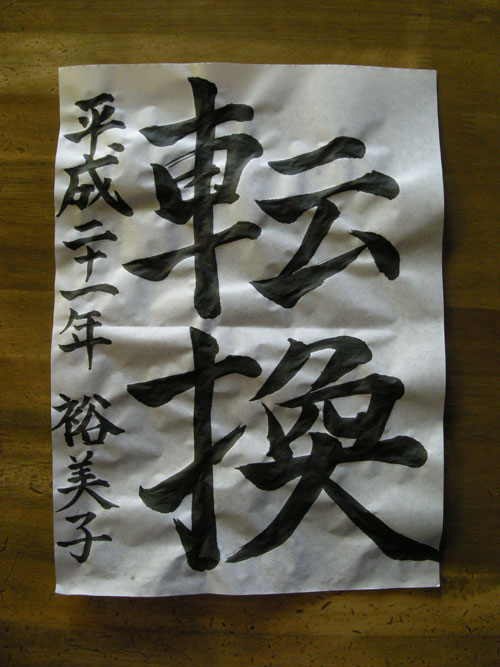 転換
平成二十一年 裕美子